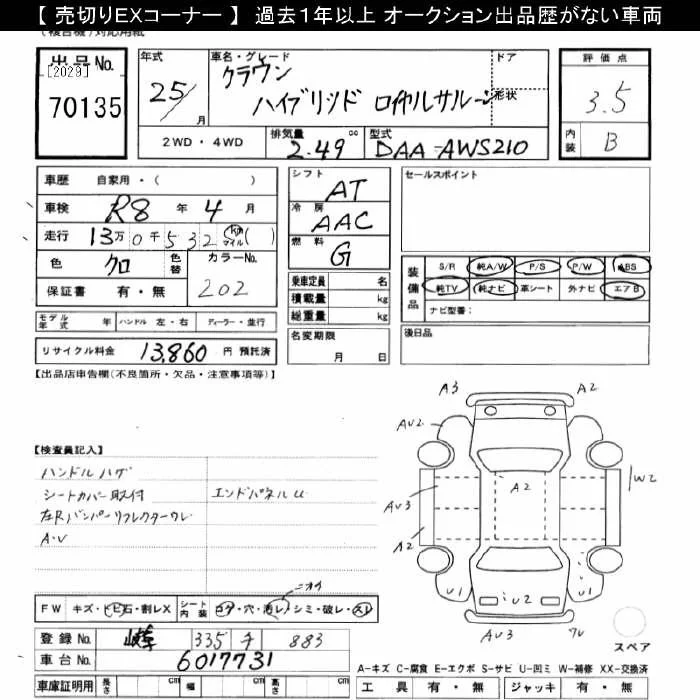 【 売切りEXコーナー 】 過去１年以上 オークション出品歴がない車両
出品No.
[2029]
70135
年式
25 月
車名・グレード
クラウン
ハイブリッド ロイヤルサルーン
ドア
形状
評価点
3.5
内装 B
2WD ・ 4WD
排気量 2.49 cc
型式 DAA-AWS210
車歴 自家用・( )
車検 R8 年 4 月
走行 13万 0千532 (km マイル)( )
色 クロ 色替
カラーNo. 202
保証書 有・無
シフト AT
冷房 AAC
燃料 G
乗車定員 名
積載量 kg
総重量 kg
セールスポイント
装備品
S/R 純A/W P/S P/W ABS
純TV 純ナビ 革シート 外ナビ エアB
ナビ型番：
モデル年式 年 ハンドル 左・右 ディーラー・並行
リサイクル料金 13,860 円 預託済
名変期限
月 日
後日品
【出品店申告欄(不良箇所・欠品・注意事項等)】
【検査員記入】
ハンドルハゲ
シートカバー取付
エンドパネルU
左Rバンパーリフレクターワレ
A・U
ニオイ
FW キズ・トビ石・割レX
シート内装 コゲ・穴・汚レ・シミ・破レ・スレ
A3
A2
AU2
A2
W2
AU3
A2
U1
U2
U1
AU3
スペア
登録No. 岐阜 335 チ 883
車台No. 6017731
車庫証明用 長さ cm 幅 cm 高さ cm
A-キズ C-腐食 E-エクボ S-サビ U-凹ミ W-補修 XX-交換済
工具 有・無 ジャッキ 有・無